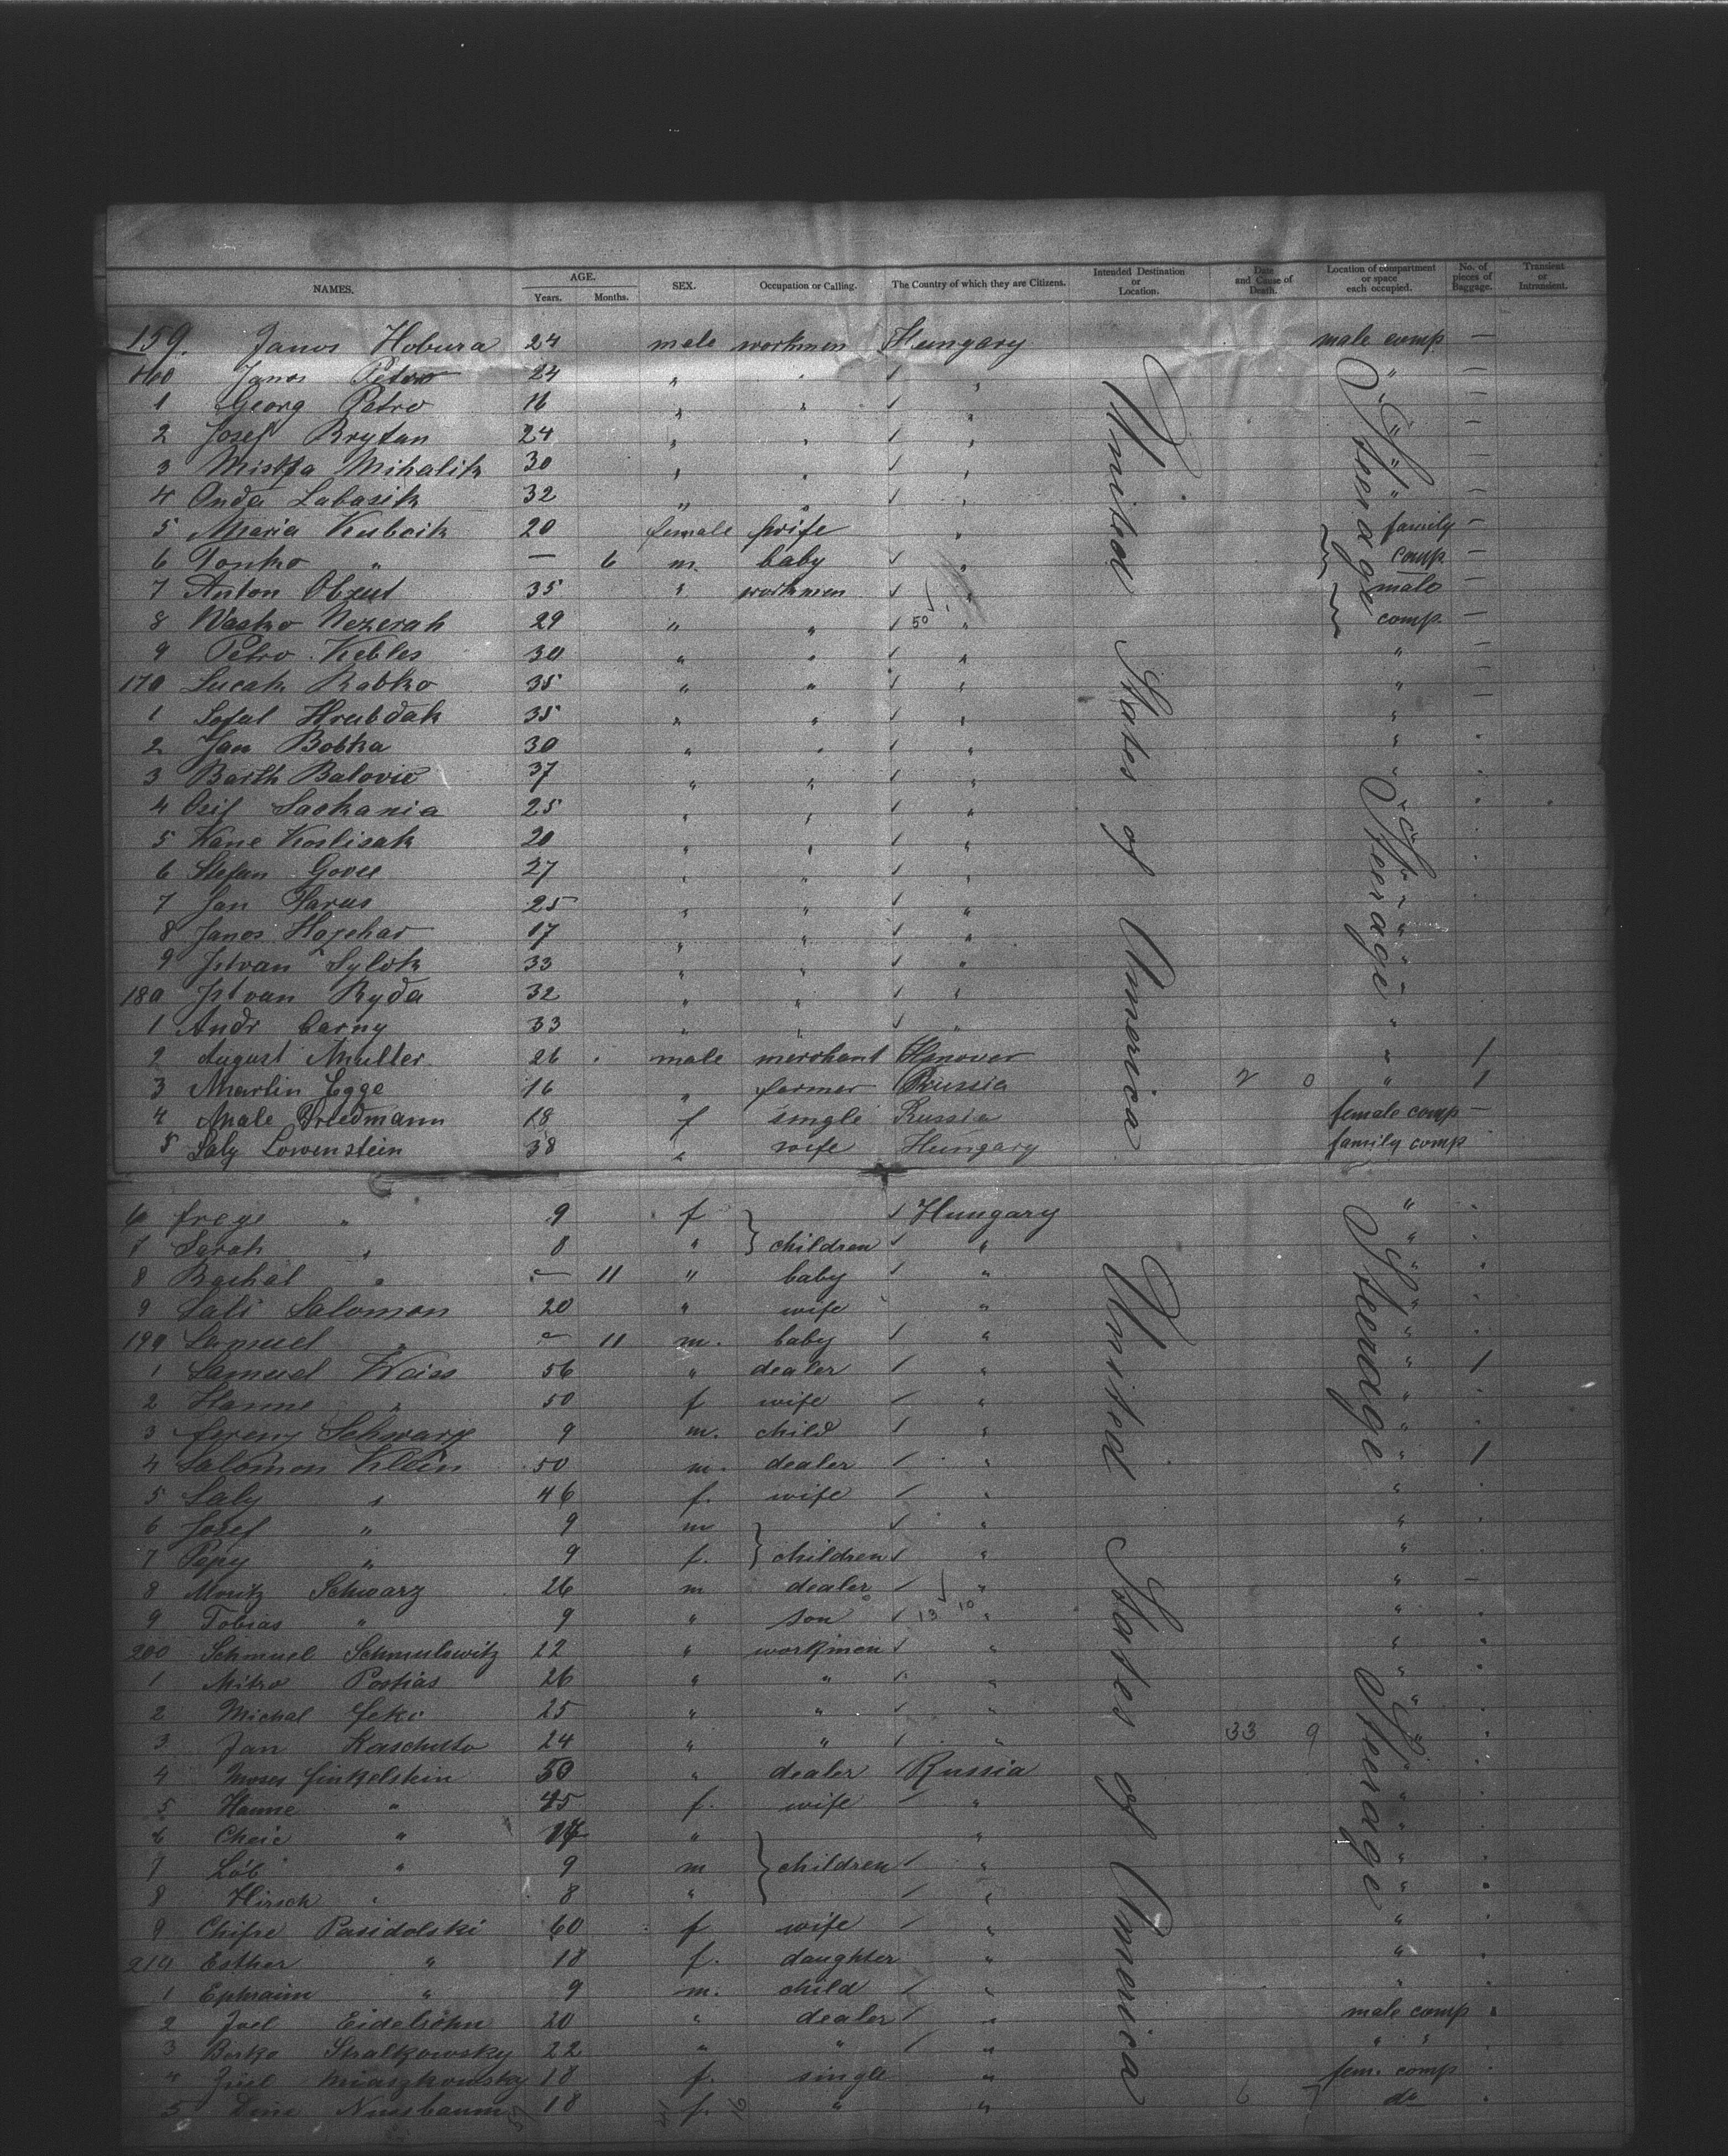 NAMES. AGE. Years. Months. SEX. Occupation or Calling. The Country of which they are Citizens. Intended Destination or Location. Date and Cause of Death. Location of compartment or space each occupied. No. of pieces of Baggage. Transient or Intransient.
159. Janos Hobura 24 male workmen Hungary male comp —
160 Janos Petro 24 " " ✓ " " —
1 Georg Petro 16 " " ✓ " " —
2 Josef Brytan 24 " " ✓ " " —
3 Mihalik 30 " " ✓ " " —
4 Onda Labasik 32 " " ✓ " " —
5 Maria Kubcik 20 female wife " family —
6 Tonko " — 6 m. baby ✓ " comp —
7 Anton Obzut 35 " workmen ✓ " male —
8 Wasko Nezerak 29 " " ✓ 50 " comp. —
9 Petro Kebles 30 " " ✓ " " —
170 Lucak Babko 35 " " ✓ " " —
1 Hrubdak 35 " " ✓ " "
2 Jan Bobka 30 " " ✓ " "
3 Barth Balovic 37 " " ✓ " "
4 Osif Sackania 25 " " ✓ " "
5 Koslisak 20 " " ✓ " "
6 Stefan 27 " " ✓ " "
7 Jan 25 " " ✓ " "
8 Janos 17 " " ✓ " "
9 Istvan Sylvk 33 " " ✓ " "
180 Istvan Ryda 32 " " ✓ " "
1 Andr Carny 33 " " ✓ " "
2 August Muller 26 male merchant Hanover " 1
3 Martin Egge 16 " farmer Prussia 2 0 " 1
4 Male Friedmann 18 f single Russia female comp —
5 Saly Lowenstein 38 " wife Hungary family comp
United States of America
Steerage
Steerage
6 " 9 f ✓ Hungary "
7 Sarah " 8 " children ✓ " "
8 Rachel " — 11 " baby ✓ " "
9 Sali Salomon 20 " wife " "
190 Samuel " — 11 m. baby ✓ " "
1 Samuel Weiss 56 " dealer ✓ " " 1
2 Hanne " 50 f wife ✓ " "
3 Ferenz Schwarz 9 m. child ✓ " "
4 Salomon Klein 50 m. dealer ✓ " " 1
5 Saly " 46 f. wife ✓ " "
6 Josef " 9 m ✓ " "
7 Pepy " 9 f. children ✓ " "
8 Moritz Schwarz 26 m dealer ✓ " " —
9 Tobias " 9 " son ✓ 13 10 " "
200 Schmuel Schmulowitz 22 " workmen ✓ " "
1 Mitro Postias 26 " " ✓ " "
2 Michal Feko 25 " " ✓ " "
3 Jan Raschuto 24 " " ✓ " 33 9 "
4 Moses Finkelstein 50 " dealer Russia "
5 Hanne " 45 f. wife ✓ " "
6 " " " "
7 Löb " 9 m children ✓ " "
8 Hirsch " 8 " ✓ " "
9 Chifre Pasidolski 60 f wife ✓ " "
210 Esther " 18 f. daughter " "
1 Ephraim " 9 m. child ✓ " "
2 Joel Eidelsohn 20 " dealer ✓ " male comp
3 Berko Stralkowsky 22 " " ✓ " " "
4 18 f. single " fem. comp
5 Dine Nussbaum 18 f. " " 6 7 do
United States of America
Steerage
Steerage